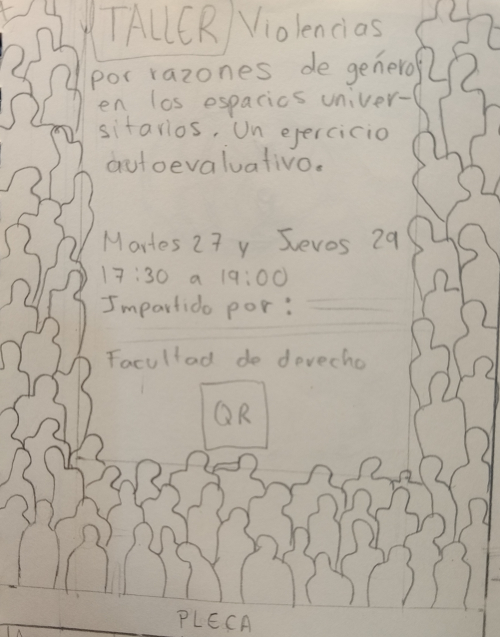 TALLER Violencias
por razones de género
en los espacios univer-
sitarios. Un ejercicio
autoevaluativo.
Martes 27 y Jueves 29
17:30 a 19:00
Impartido por:
Facultad de derecho
QR
PLECA